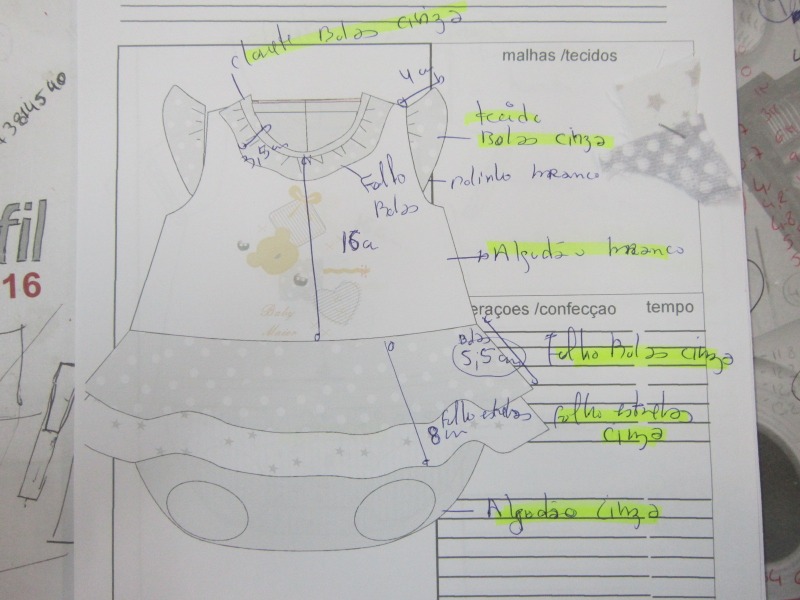 Bolas cinza
4 cm
malhas /tecidos
tecido
Bolas cinza
3,5cm
Folho
Bolas
branco
16
Algodão branco
Baby
erações /confecção
tempo
Bolas
5,5cm
Folho Bolas cinza
Folho estrelas
8cm
Folho estrelas
cinza
Algodão cinza
fil
16